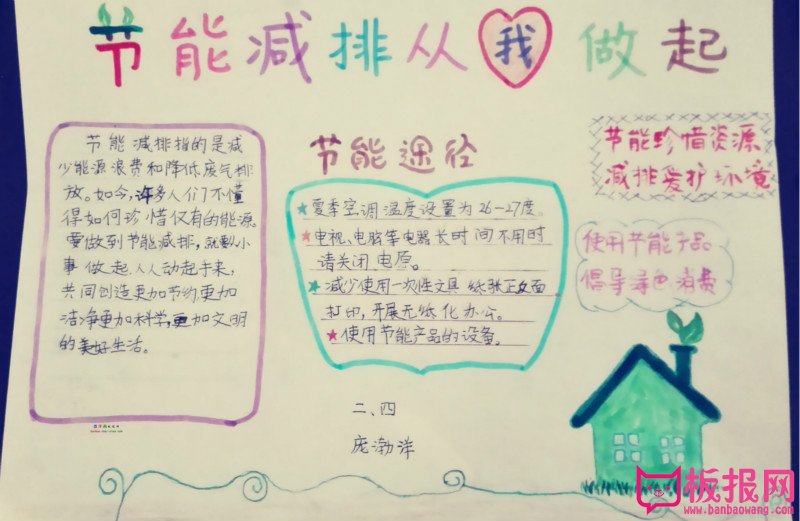 节能减排从我做起
节能减排指的是减
少能源浪费和降低废气排
放。如今,许多人们不懂
得如何珍惜仅有的能源。
要做到节能减排,就要从小
事做起,人人动起手来,
共同创造更加节约更加
洁净更加科学,更加文明
的美好生活。
节能途径
★夏季空调温度设置为26-27度。
★电视、电脑等电器长时间不用时
请关闭电原。
★减少使用一次性文具纸张正反面
打印,开展无纸化办公。
★使用节能产品的设备。
节能珍惜资源
减排爱护环境
使用节能产品
倡导绿色消费
二、四
庞渤洋
板报网
www.banbaowang.com